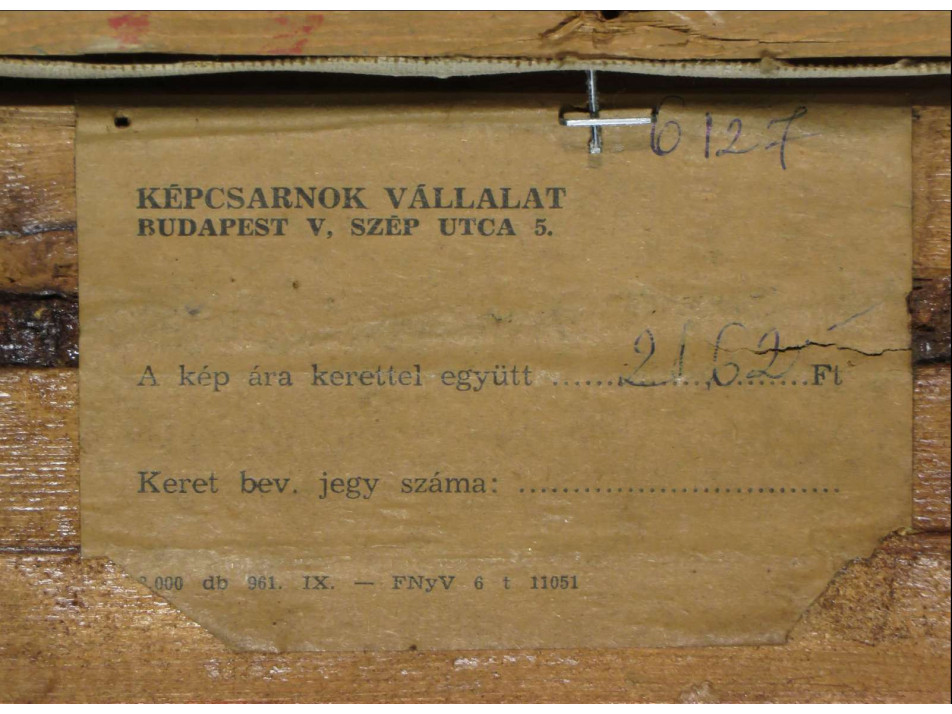 6127
KÉPCSARNOK VÁLLALAT
BUDAPEST V, SZÉP UTCA 5.
A kép ára kerettel együtt ......2162.-......Ft
Keret bev. jegy száma: ..............................
000 db 961. IX. — FNyV 6 t 11051